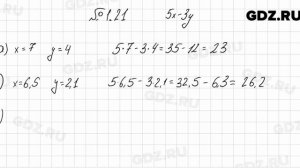 №1.21 5x-3y GDZ.RU
) x=7 y=4 5·7-3·4=35-12=23
) x=6,5 y=2,1 5·6,5-3·2,1=32,5-6,3=26,2
)
GDZ.RU